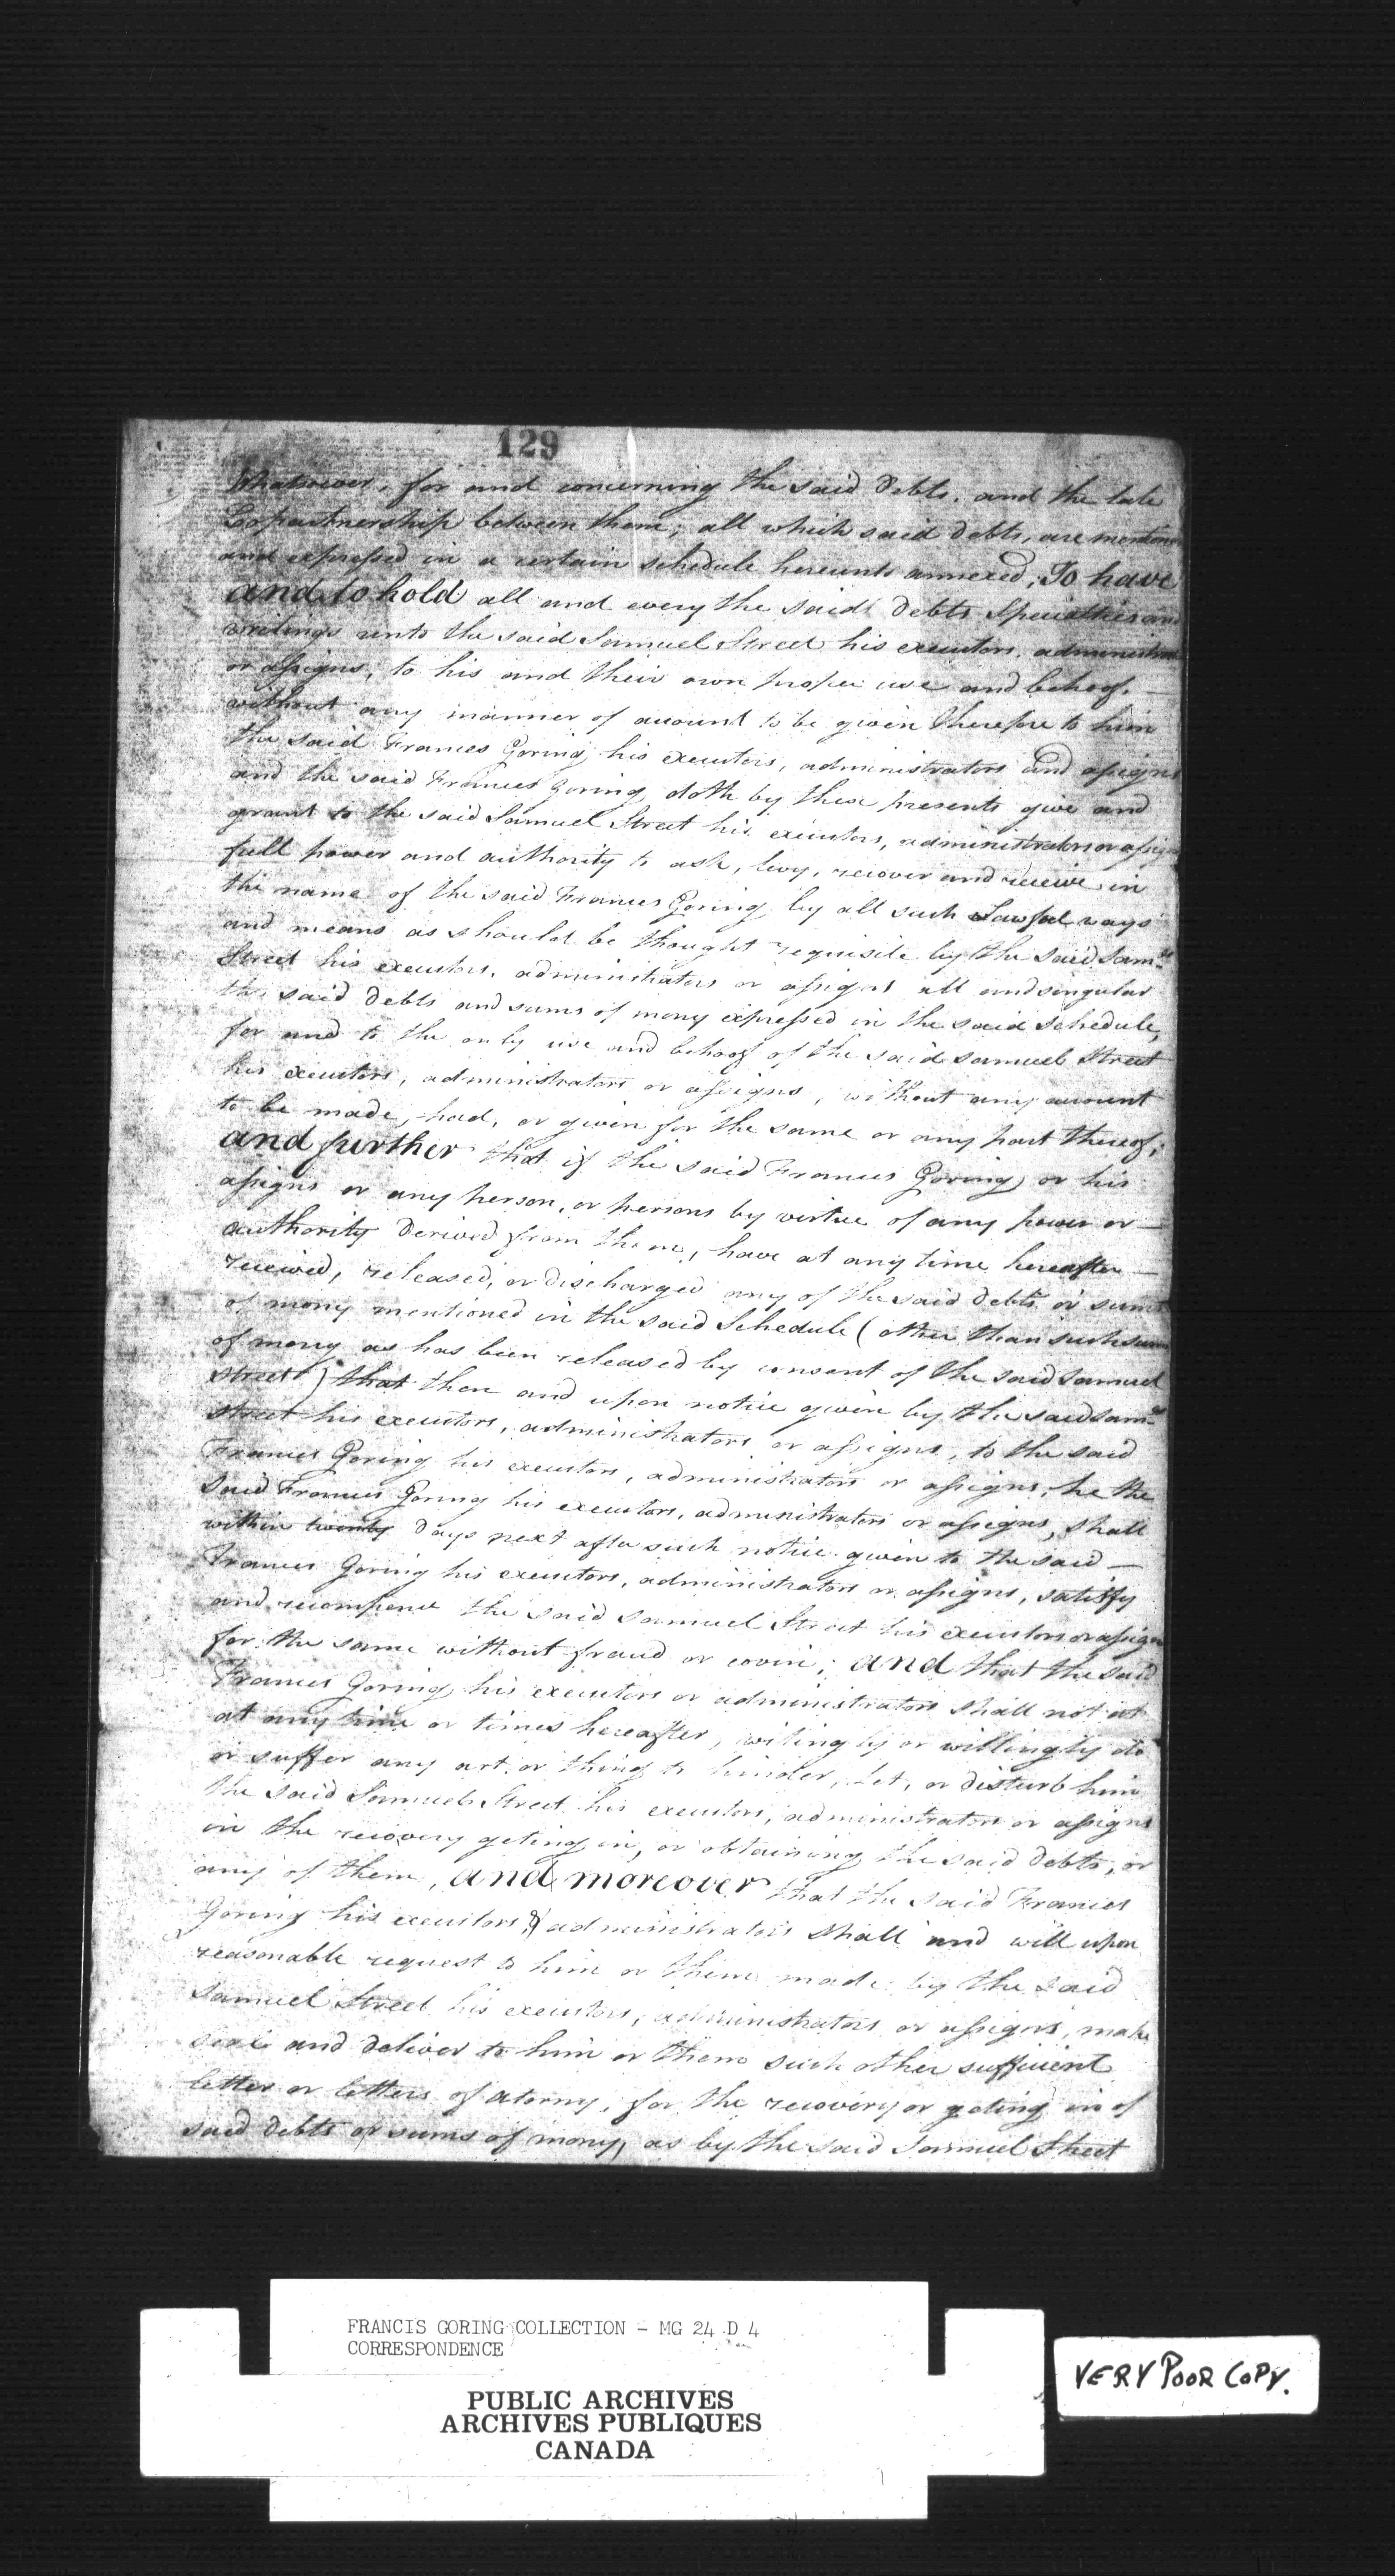 129
Whatsoever, for and concerning the said debts, and the late
Copartnership between them; all which said debts, are mention
and expressed in a certain schedule hereunto annexed; To have
and to hold all and every the said debts Specialties and
writings unto the said Samuel Street his executors, administrat
or assigns, to his and their own proper use and behoof.
without any manner of account to be given therefore to him
the said Frances Goring his executors, administrators and assigns
and the said Frances Goring doth by these presents give and
grant to the said Samuel Street his executors, administrators or assig
full power and authority to ask, levy, recover and receive in
the name of the said Frances Goring by all such Lawful ways
and means as should be thought requisite by the said Saml
Street his executors, administrators or assigns all and singular
the said debts and sums of mony expressed in the said schedule,
for and to the only use and behoof of the said Samuel Street
his executors, administrators or assigns, without any account
to be made, had, or given for the same or any part thereof;
and further that if the said Frances Goring or his
assigns or any person, or persons by virtue of any power or
authority derived from them, have at any time hereafter
received, released, or discharged any of the said debts or sums
of mony mentioned in the said Schedule (other than such sum
of mony as has been released by consent of the said Samuel
Street) that then and upon notice given by the said Saml
Street his executors, administrators or assigns, to the said
Frances Goring his executors, administrators or assigns, he the
said Frances Goring his executors, administrators or assigns, shall
within twenty days next after such notice given to the said
Frances Goring his executors, administrators or assigns, satisfy
and recompence the said Samuel Street his executors or assigns
for the same without fraud or covin; and that the said
Frances Goring his executors or administrators shall not at
at any time or times hereafter, witingly or willingly do
or suffer any act, or thing to hinder, let, or disturb him
the said Samuel Street his executors, administrators or assigns
in the recovery geting in, or obtaining the said debts, or
any of them, and moreover that the said Frances
Goring his executors, & administrators shall and will upon
reasonable request to him or them made by the said
Samuel Street his executors, administrators or assigns, make
seal and deliver to him or them such other sufficient
letter or letters of atorny, for the recovery or geting in of
said debts or sums of mony, as by the said Samuel Street
FRANCIS GORING COLLECTION - MG 24 D 4
CORRESPONDENCE
PUBLIC ARCHIVES
ARCHIVES PUBLIQUES
CANADA
VERY POOR COPY.